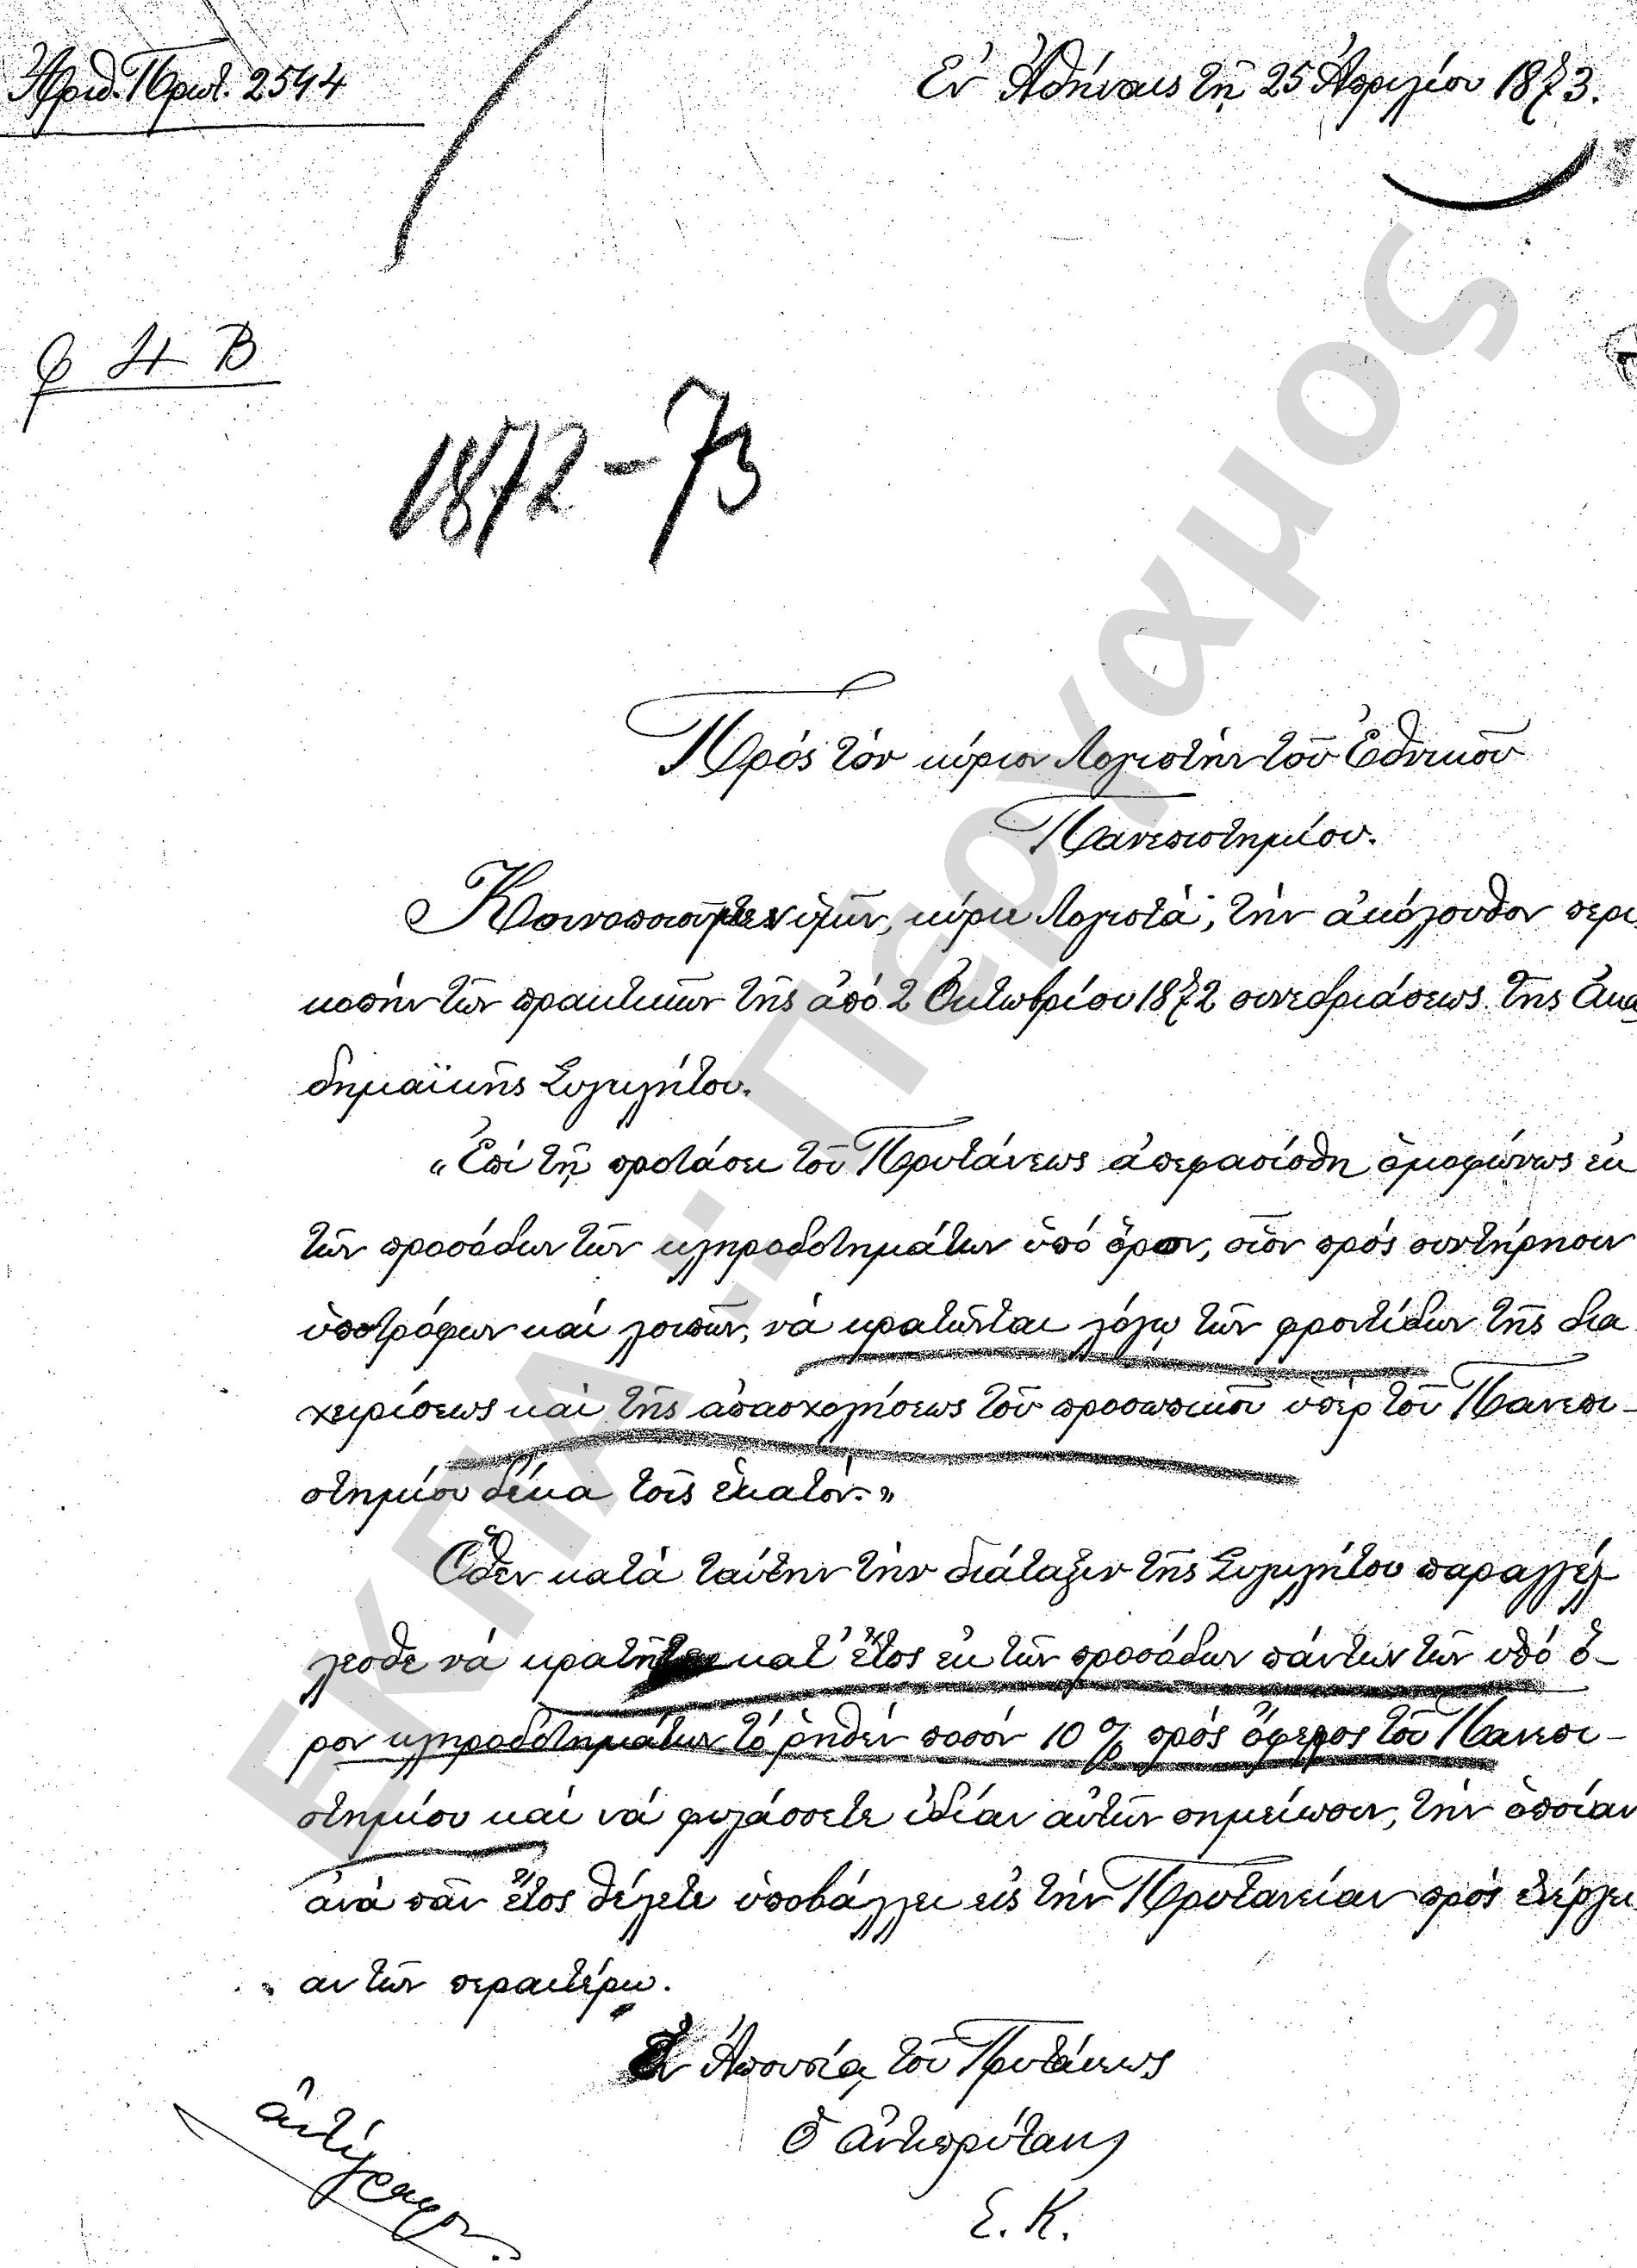 Ἀριθ. Πρωτ. 2544
Ἐν Ἀθήναις τῇ 25 Ἀπριλίου 1873.
φ 4 Β
1872-73
Πρός τόν κύριον Λογιστήν τοῦ Ἐθνικοῦ
Πανεπιστημίου.
Κοινοποιοῦμεν ὑμῖν, κύριε Λογιστά, τήν ἀκόλουθον περι
κοπήν τῶν πρακτικῶν τῆς ἀπό 2 Ὀκτωβρίου 1872 συνεδριάσεως τῆς Ἀκα
δημαϊκῆς Συγκλήτου.
„Ἐπί τῇ προτάσει τοῦ Πρυτάνεως ἀπεφασίσθη ὁμοφώνως ἐκ
τῶν προσόδων τῶν κληροδοτημάτων ὑπό ὅρον, οἷον πρός συντήρησιν
ὑποτρόφων καί λοιπῶν, νά κρατῶνται λόγῳ τῶν φροντίδων τῆς δια
χειρίσεως καὶ τῆς ἀπασχολήσεως τοῦ προσωπικοῦ ὑπέρ τοῦ Πανεπι-
στημίου δέκα τοῖς ἑκατόν.»
Ὅθεν κατὰ ταύτην τὴν διάταξιν τῆς Συγκλήτου παραγγέλ
λεσθε νά κρατῆτε κατ' ἔτος ἐκ τῶν προσόδων πάντων τῶν ὑπό ὅ-
ρον κληροδοτημάτων τό ῥηθέν ποσόν 10 % πρός ὄφελος τοῦ Πανεπι-
στημίου καί νά φυλάσσετε ἰδίαν αὐτῶν σημείωσιν, τήν ὁποίαν
ἀνά πᾶν ἔτος θέλετε ὑποβάλλει εἰς τήν Πρυτανείαν πρός ἐνέργει
αν τῶν περαιτέρω.
Ἐν Ἀπουσίᾳ τοῦ Πρυτάνεως
Ὁ ἀντιπρύτανις
Ε. Κ.
ἀντίγραφον
ΕΚΠΑ: Πέργαμος